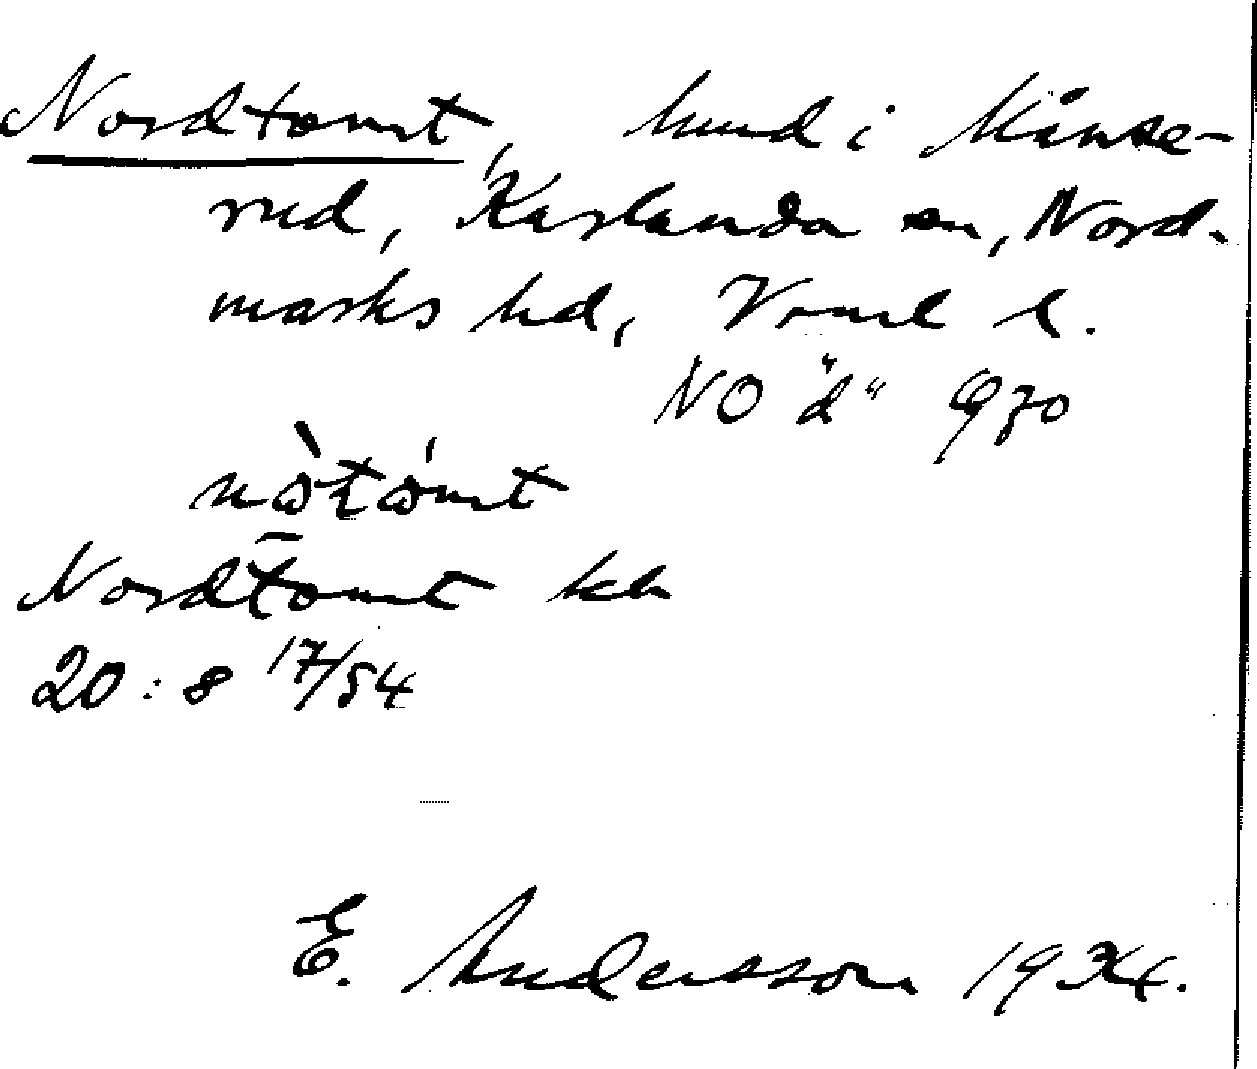 Nordtomt, hmd i Månse-
rud, Karlanda sn, Nord-
marks hd, Vrml l.
NO "d" 970
nòtómt
Nordtomt kh
20:8 17/54
E. Andersson 1934.